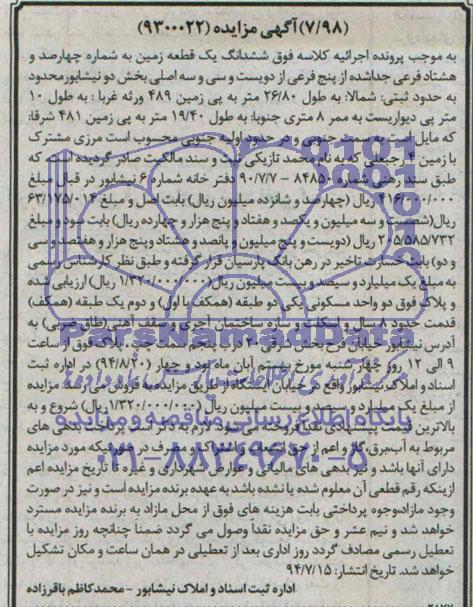 (۷/۹۸)آگهی مزایده (۹۳۰۰۰۲۲)
به موجب پرونده اجرائیه کلاسه فوق ششدانگ یک قطعه زمین به شماره چهارصد و
هشتاد فرعی جداشده از پنج فرعی از دویست و سی و سه اصلی بخش دو نیشابورمحدود
به حدود ثبتی: شمالا: به طول ۲۶/۸۰ متر به پی زمین ۴۸۹ ورثه غربا : به طول ۱۰
متر پی دیواریست به ممر ۸ متری جنوبا: به طول ۱۹/۴۰ متر به پی زمین ۴۸۱ شرقا:
که مایل است به سمت جنوبی و در حدود اولیه جنوبی محسوب است مرزی مشترک
با زمین ۴ رجبعلی که به نام محمد تازیکی ثبت و سند مالکیت صادر گردیده است، که
طبق سند رهنی شماره ۸۴۸۵۰ - ۹۰/۷/۷ دفتر خانه شماره ۶ نیشابور در قبال مبلغ
۴۱۶/۰۰۰/۰۰۰ ریال (چهارصد و شانزده میلیون ریال) بابت اصل و مبلغ ۶۳/۱۷۵/۰۱۴
ریال(شصت و سه میلیون و یکصد و هفتاد و پنج هزار و چهارده ریال) بابت سود و مبلغ
۲۰۵/۵۸۵/۷۳۲ ریال (دویست و پنج میلیون و پانصد و هشتاد وپنج هزار و هفتصد و سی
و دو) بابت خسارت تاخیر در رهن بانک پارسیان قرار گرفته و طبق نظر کارشناس رسمی
به مبلغ یک میلیارد و سیصد و بیست میلیون ریال (۱/۳۲۰/۰۰۰/۰۰۰ ریال) ارزیابی شده
و پلاک فوق دو واحد مسکونی یکی دو طبقه (همکف با اول) و دوم یک طبقه (همکف)
قدمت حدود ۸ سال و اسکلت و سازه ساختمان آجری و سقف آهنی(طاق ضربی) به
آدرس نیشابور خیابان فرح بخش شرقی ۲۰ در پنجم سمت چپ، پلاک فوق از ساعت
۹ الی ۱۲ روز چهار شنبه مورخ بیستم آبان ماه نود و چهار (۹۴/۸/۲۰) در اداره ثبت
اسناد و املاک نیشابور واقع در خیابان ایستگاه از طریق مزایده به فروش می رسد. مزایده
از مبلغ یک میلیارد و سیصد و بیست میلیون ریال (۱/۳۲۰/۰۰۰/۰۰۰ریال) شروع و به
بالاترین قیمت پیشنهادی نقداً فروخته می شود. لازم به ذکر است پرداخت بدهی های
مربوط به آب،برق،گاز و اعم از حق انشعاب و یا اشتراک و مصرف در صورتیکه مورد مزایده
دارای آنها باشد و نیز بدهی های مالیاتی و عوارض شهرداری و غیره تا تاریخ مزایده اعم
ازینکه رقم قطعی آن معلوم شده یا نشده باشد به عهده برنده مزایده است و نیز در صورت
وجود مازاد،وجوه پرداختی بابت هزینه های فوق از محل مازاد به برنده مزایده مسترد
خواهد شد و نیم عشر و حق مزایده نقداً وصول می گردد ضمناً چنانچه روز مزایده با
تعطیل رسمی مصادف گردد روز اداری بعد از تعطیلی در همان ساعت و مکان تشکیل
خواهد شد. تاریخ انتشار: ۹۴/۷/۱۵
اداره ثبت اسناد و املاک نیشابور - محمدکاظم باقرزاده
ParsNamadData
پایگاه اطلاع رسانی مناقصه و مزایده
۰۲۱-۸۸۳۴۹۶۷۰-۵